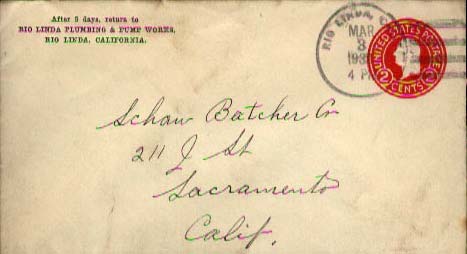 After 5 days, return to
RIO LINDA PLUMBING & PUMP WORKS,
RIO LINDA, CALIFORNIA.
RIO LINDA,
MAR
3
4 P
UNITED STATES POSTAGE
2 CENTS 2
Schaw Batcher Co
211 J St
Sacramento
Calif.